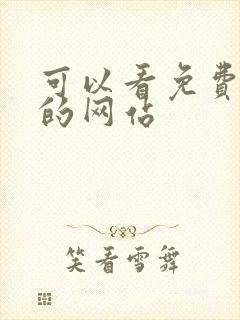 可以看免费
的网站
笑看雪舞